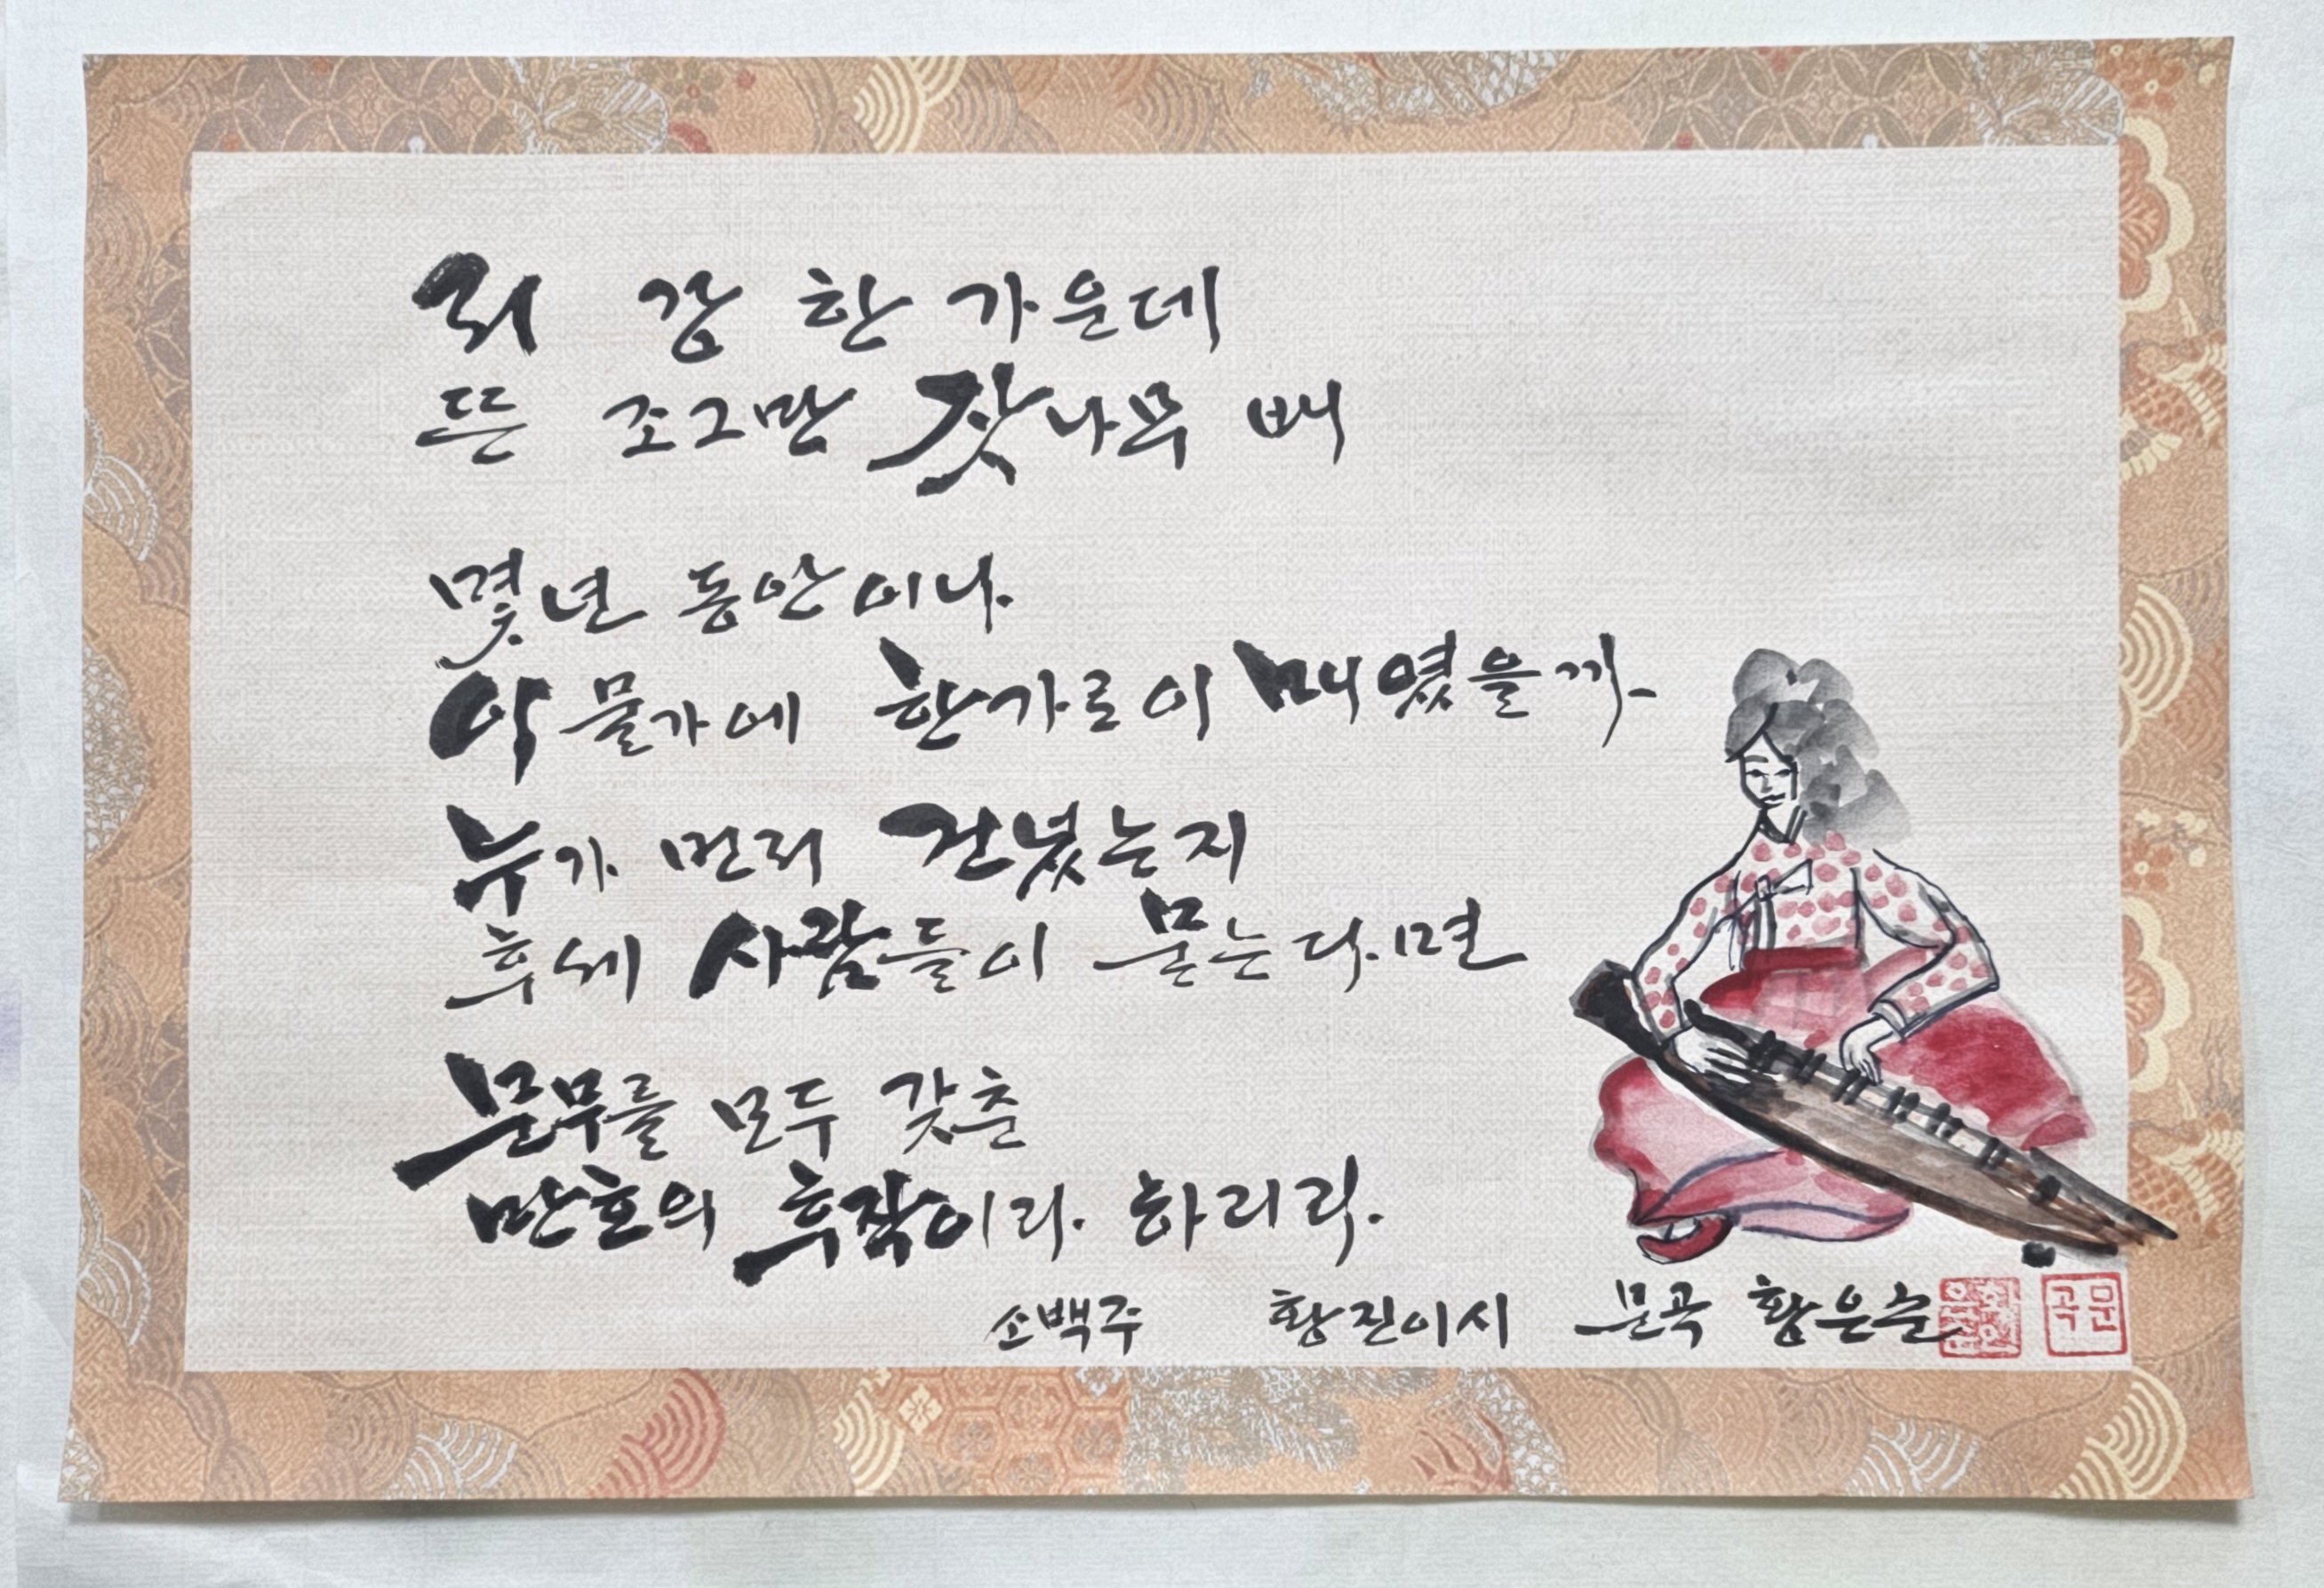 저 강 한 가운데
뜬 조그만 잣나무 배
몇 년 동안이나
이 물가에 한가로이 매였을까
누가 먼저 건넜는지
후세 사람들이 묻는다면
문무를 모두 갖춘
만호의 후작이라 하리라.
소백주 황진이시 문곡 황은순
문곡